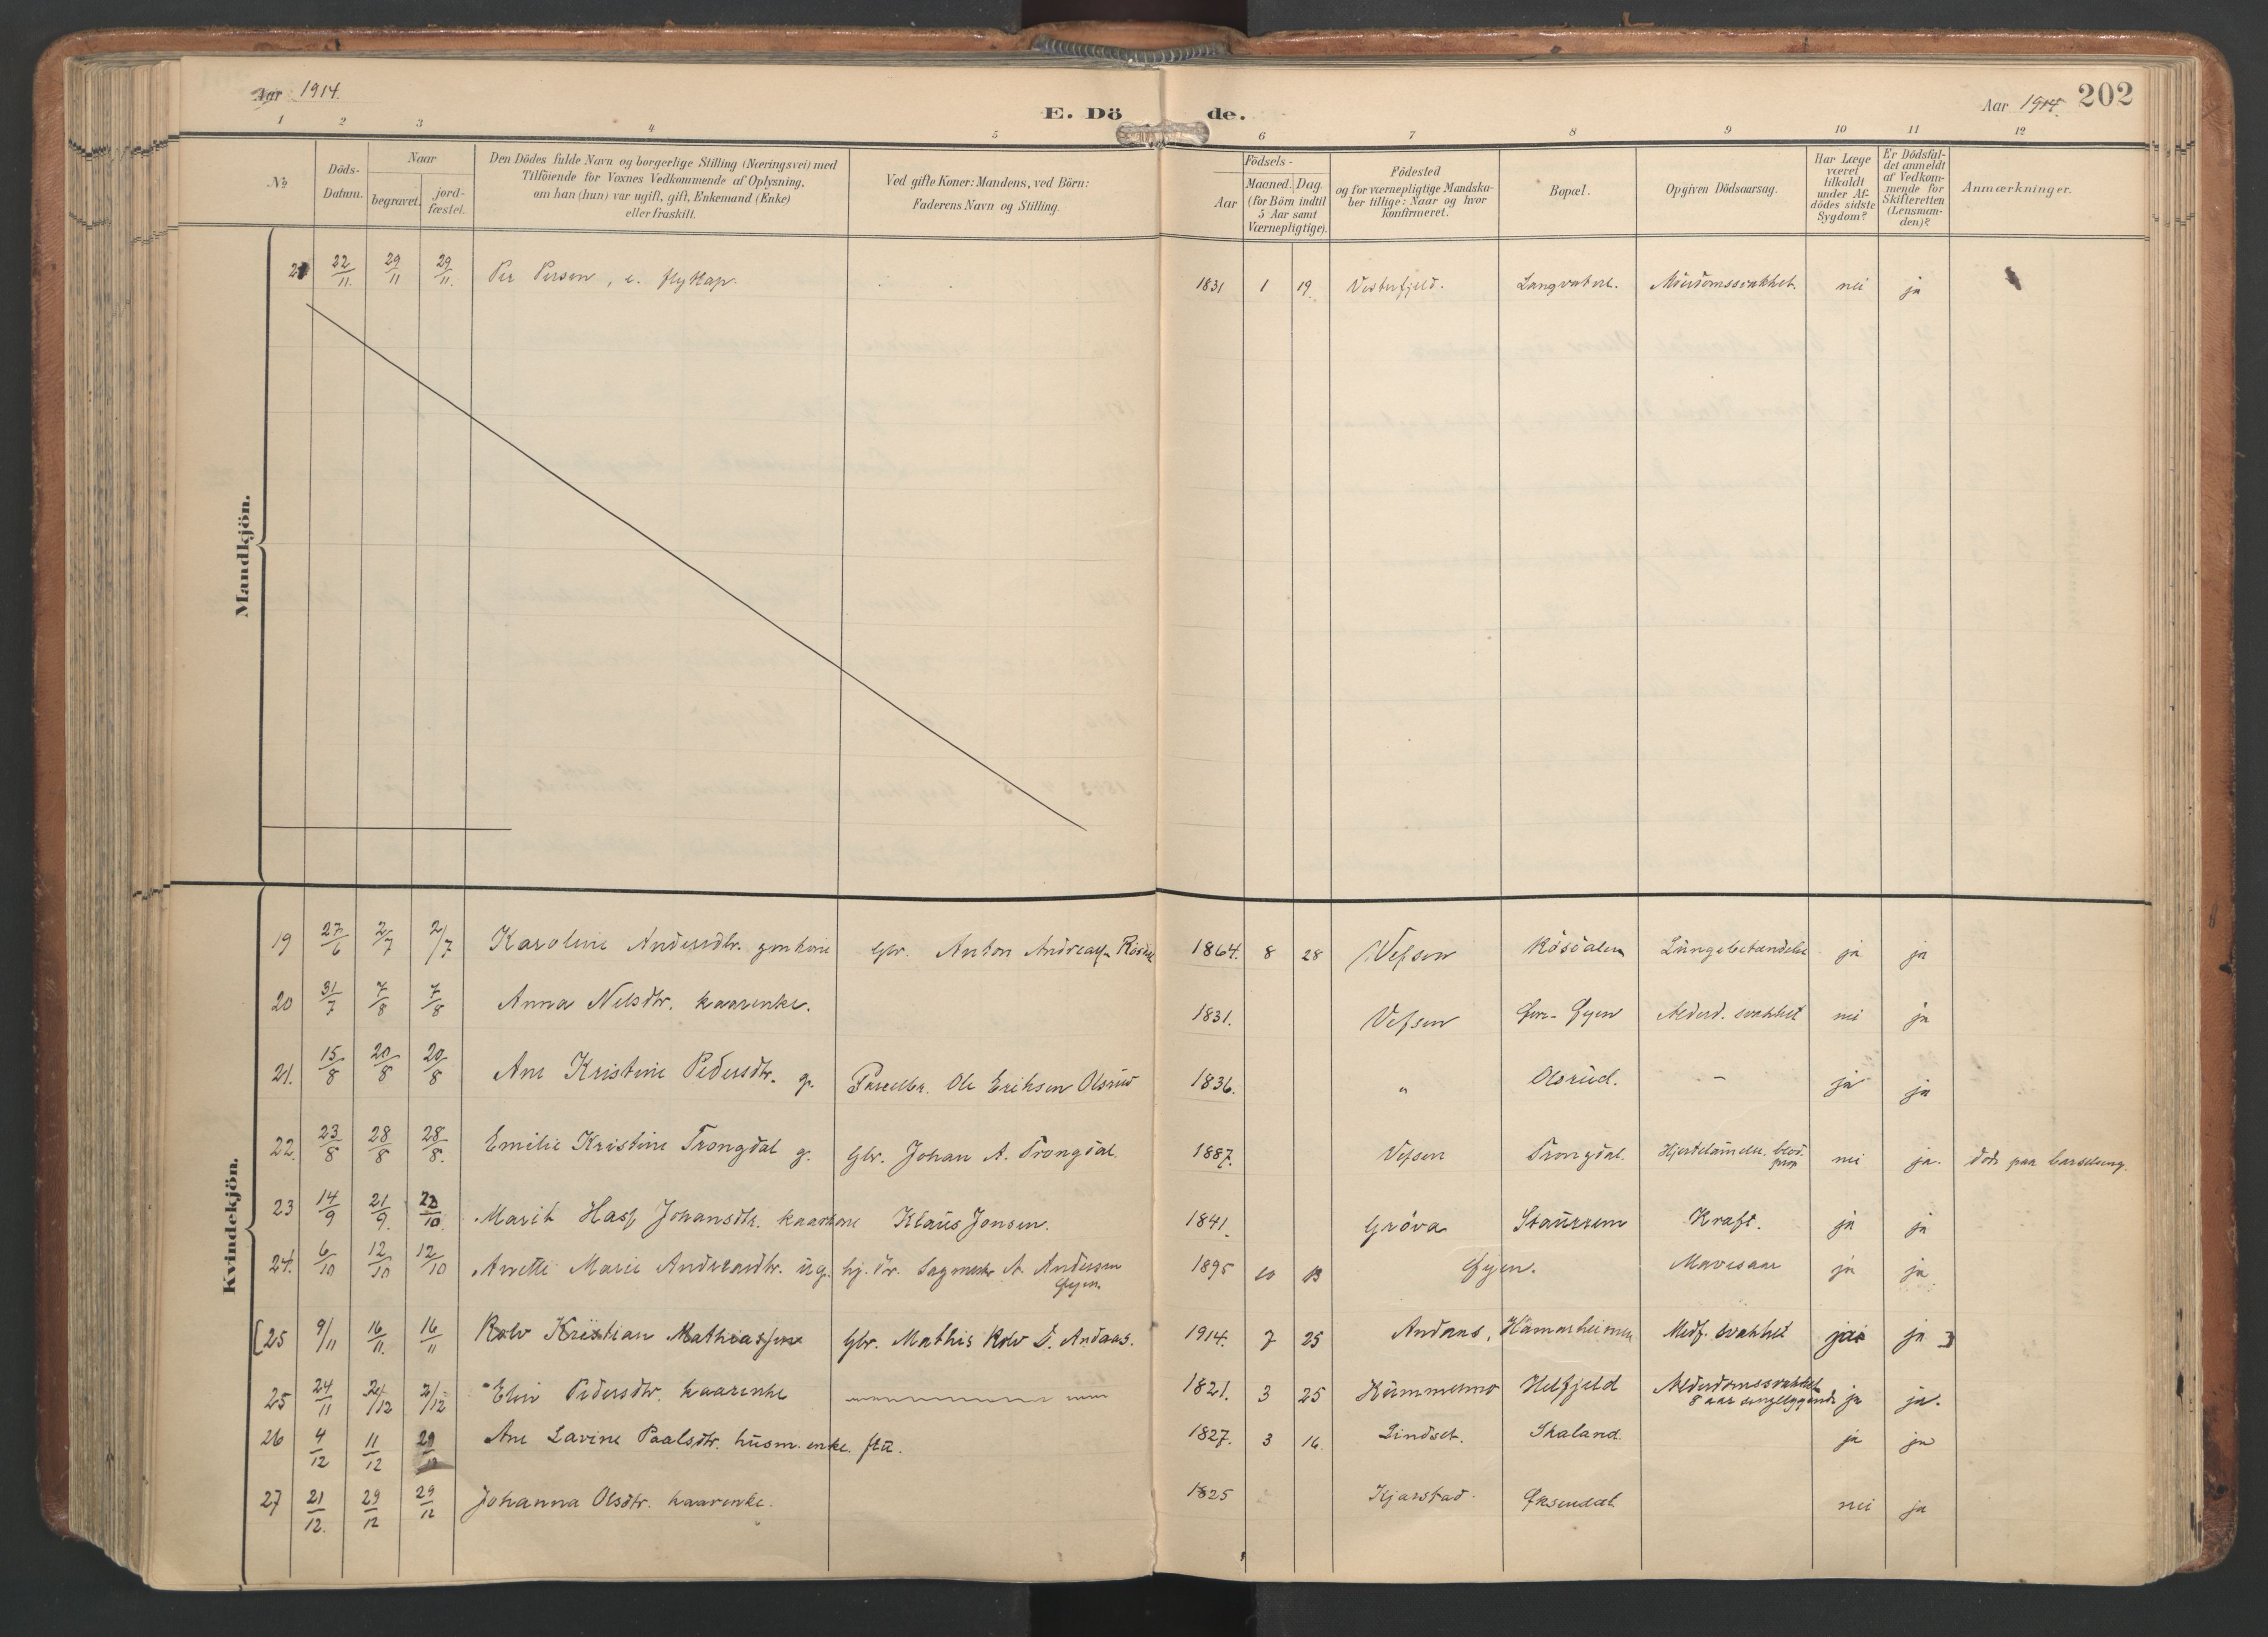 Aar 1914.
E. Döde.
Aar 1914. 202
1 2 3 4 5 6 7 8 9 10 11 12
No
Döds-Datum.
Naar
begravet.
jord-fæstet.
Den Dödes fulde Navn og borgerlige Stilling (Næringsvei) med
Tilföiende for Voxnes Vedkommende af Oplysning,
om han (hun) var ugift, gift, Enkemand (Enke)
eller fraskilt.
Ved gifte Koner: Mandens, ved Börn:
Faderens Navn og Stilling.
Födsels-
Aar
Maaned. Dag.
(for Börn indtil
5 Aar samt
Værnepligtige).
Födested
og for værnepligtige Mandska-
ber tillige: Naar og hvor
konfirmeret.
Bopæl.
Opgiven Dödsaarsag.
Har Læge
været
tilkaldt
under Af-
dödes sidste
Sygdom?
Er Dödsfal-
det anmeldt
af Vedkom-
mende for
Skifteretten
(Lensman-
den)?
Anmærkninger.
Mandkjön.
22/11. 29/11 29/11. Per Persen, e. 1831 1 19. Vesterfjeld. Langvatn. nei ja
Kvindekjön.
19 27/6 2/7 2/7 Karoline Andersdtr. Gbr. Anton Andreas 1864. 8 28 Vefsen Rösdalen Lungebetændelse ja ja
20 31/7 7/8 7/8 Anna Nelsdtr. kaarenke. 1831. Vefsen Alderd. svakhet nei ja
21. 15/8 20/8 20/8 Ane Kristine Pedersdtr. g. Parcelbr. Ole Eriksen Olsrud 1836. " Olsrud. – ja ja
22. 23/8 28/8 28/8. Emilie Kristine Trongdal g. Gbr. Johan A. Trongdal 1887. Vefsen Trongdal. blod-prop nei ja. döde paa barselseng.
23 14/9 21/9. /10. Marit Johansdtr. Klaus Jonsen. 1841. Gröva Kræft. ja ja
24. 6/10 12/10 12/10 Anette Marie Andersdtr. ug. hj. dr. Sagmester A. Andersen Öyen. 1895 10 13 Öyen. Mavesaar ja ja
[25 9/11 16/11. 16/11 Rolv Kristian Mathiassen Gbr. Mathis Rolv D. Andaas. 1914. 7 25 Andaas, Medf. svakhet ja ja ]
25 24/11 2/12 2/12 Elin Pedersdtr. kaarenke 1821. 3 25 Kummermo Helfjeld Alderdomssvakhet 8 aar sengeliggende ja ja.
26 4/12 11/12 29/12 Ane Lavine Paalsdtr. husm. enke. 1827. 3 16. Lindset. Skaland. ja ja
27 21/12. 29/12 29/12 Johanna Olsdtr. kaarenke. 1825 Kjærstad. Öksendal nei ja